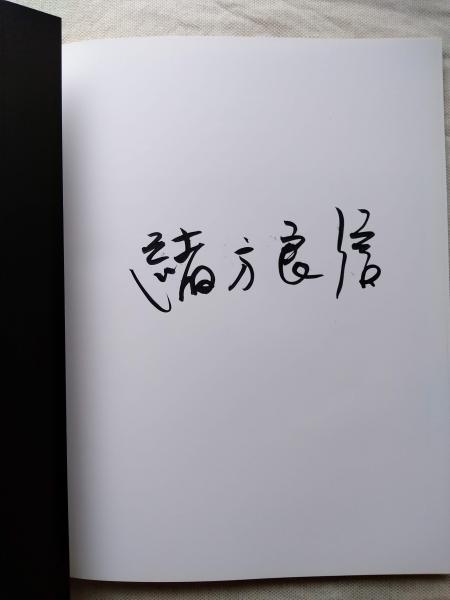 緒方良信